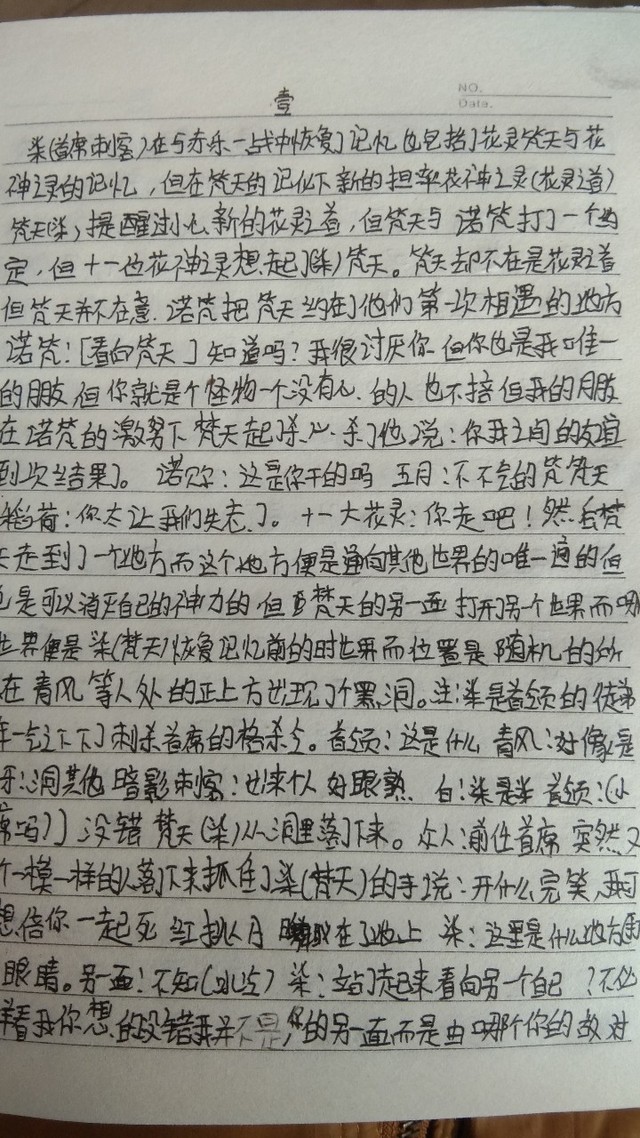 NO.
Date.
壹
柒(首席刺客)在与赤乐一战中恢复了记忆也包括了花灵梵天与花
神之灵的记忆，但在梵天的记忆下新的担率花神之灵(花灵道)
梵天(柒)提醒过小心新的花灵道，但梵天与诺梵打了一个
定，但十一也花神之灵想起了(柒)梵天。梵天却不在是花灵道
但梵天并不在意.诺梵把梵天约在了他们第一次相遇的地方
诺梵：[看向梵天]知道吗？我很讨厌你但你也是我唯一
的朋友但你就是个怪物一个没有心的人也不
在诺梵的激努下梵天起了杀心杀了他说：你我之间的友谊
到次结果了。诺尔：这是你干的吗 五月：不不
稻荷：你太让我们失忘了。十一大花灵：你走吧！然后梵
天走到了一个地方而这个地方便是通向其他世界的唯一
也是可以消灭自己的神力的但梵天的另一面打开了另个世界而哪
世界便是柒(梵天)恢复记忆前的时世界而位置是随机的所
在青风等人处的正上方出现了个黑洞。注:柒是首领的徒弟
年一气之下下了刺杀首席的格杀令。首领：这是什么 青风：对像是
牙：洞其他暗影刺客：出来个人好眼熟 白：柒是 首领：(小
席吗)]没错梵天(柒)从洞里落了下来。众人：前任首席 突然又
个一模一样的人落下来抓住了柒(梵天)的手说：开什么完笑，我可
想倍你一起死 在了地上 柒：这里是什么地方
眼睛。另一面：不知(冰冷)柒：站了起来看向另一个自己 ？不必
看我你想的没错我并不是你的另一面而是由哪个你的敌对